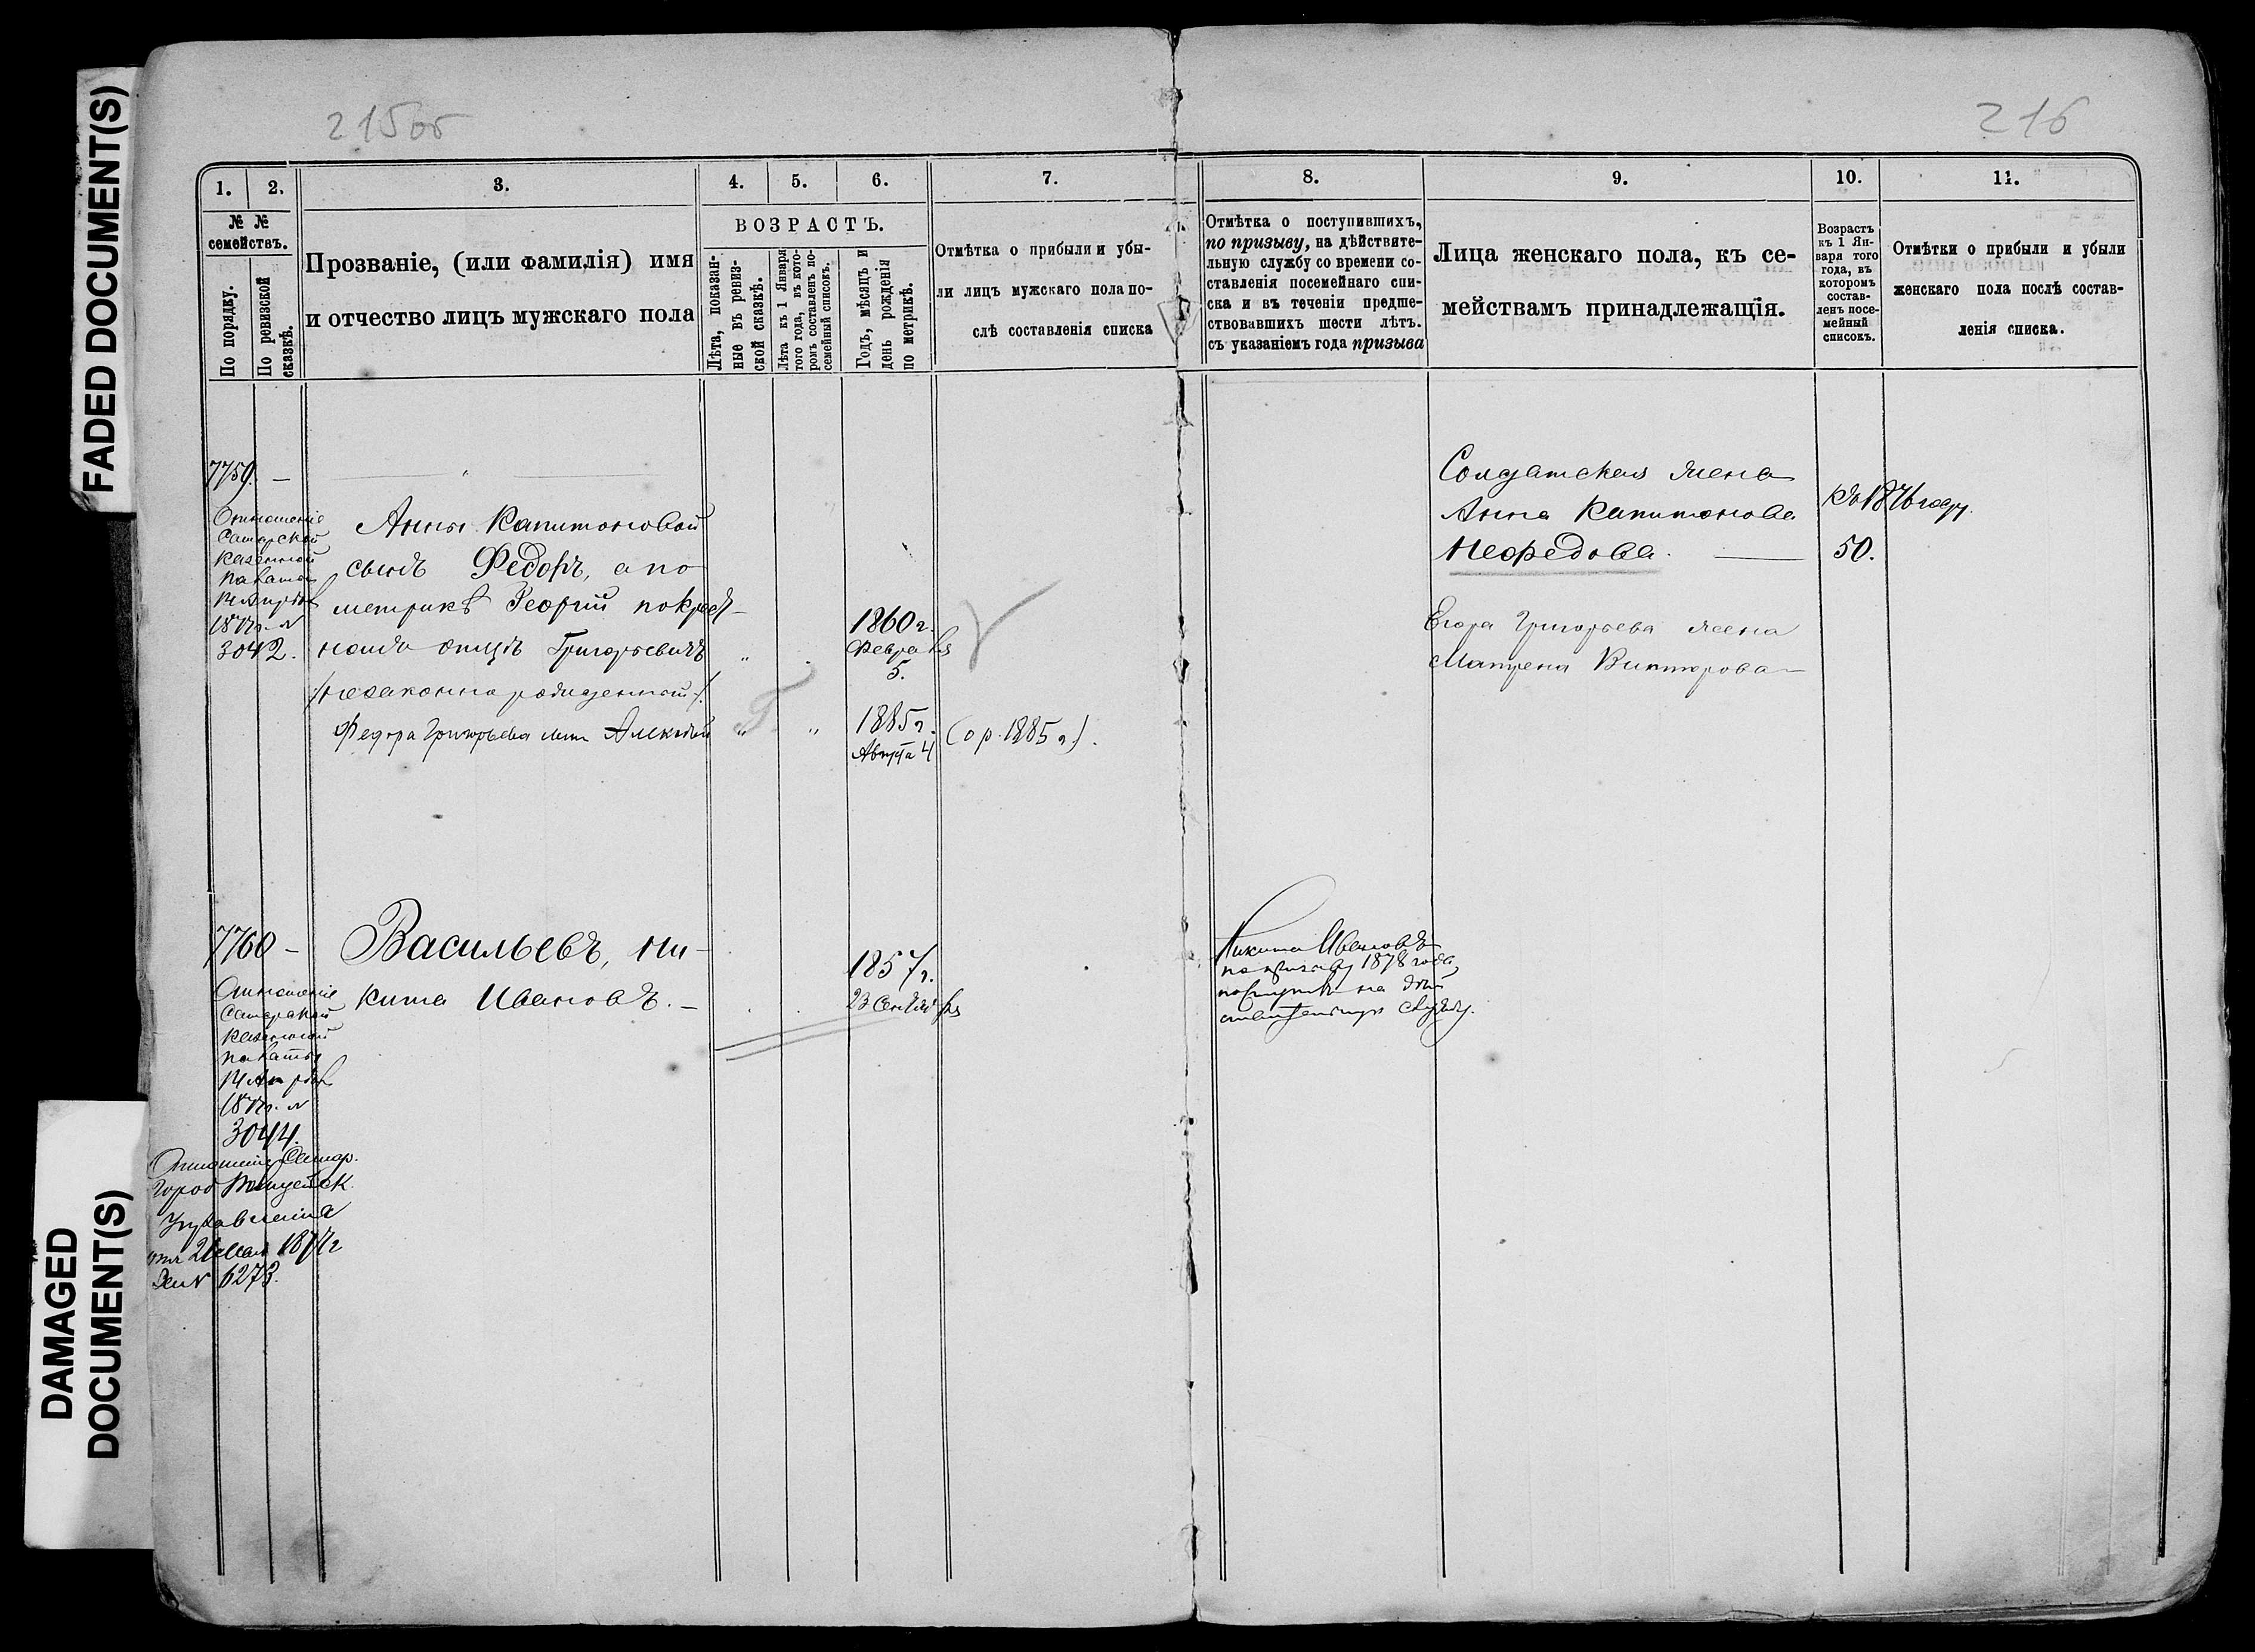 FADED DOCUMENT(S)
DAMAGED
DOCUMENT(S)
215об
216
1.
2.
3.
4.
5.
6.
7.
8.
9.
10.
11.
№ №
семействъ.
По порядку.
По ревизской
сказкѣ.
Прозваніе, (или фамилія) имя
и отчество лицъ мужскаго пола
ВОЗРАСТЪ.
Лѣта, показан-
ные въ ревиз-
ской сказкѣ.
Лѣта къ 1 Января
того года, въ кото-
ромъ составленъ по-
семейный списокъ.
Годъ, мѣсяцъ и
день рожденія
по метрикѣ.
Отмѣтка о прибыли и убы-
ли лицъ мужскаго пола по-
слѣ составленія списка
Отмѣтка о поступившихъ,
по призыву, на дѣйствите-
льную службу со времени со-
ставленія посемейнаго спи-
ска и въ теченіи предше-
ствовавшихъ шести лѣтъ.
съ указаніемъ года призыва
Лица женскаго пола, къ се-
мействамъ принадлежащія.
Возрастъ
къ 1 Ян-
варя того
года, въ
которомъ
состав-
ленъ посе-
мейный
списокъ.
Отмѣтки о прибыли и убыли
женскаго пола послѣ состав-
ленія списка.
7759. —
Отношеніе
Самарской
Казенной
палаты
1877г. №
3042.
Анны Капитоновой
сынъ Федоръ, а по
метрикѣ Георгій по крест-
ному отцу Григорьевичъ
/незаконнорожденный/.
Федора Григорьева сынъ Алексѣй
1860г.
Февраля
5.
1885г.
Августа 4
(о р. 1885г.).
Солдатская жена
Анна Капитонова
Нефедова. —
Къ 1876 году.
50.
Егора Григорьева жена
Матрена Викторова —
7760 —
Отношеніе
Самарской
Казенной
палаты
1877г. №
3044.
Отношеніе Самар.
Город Полицейск
Управленія
1877г
за № 6273.
Васильевъ, Ни-
кита Ивановъ. —
1857г.
23 Сентября
Никита Ивановъ
по призыву 1878 года,
поступилъ на дѣй
ствительную службу.